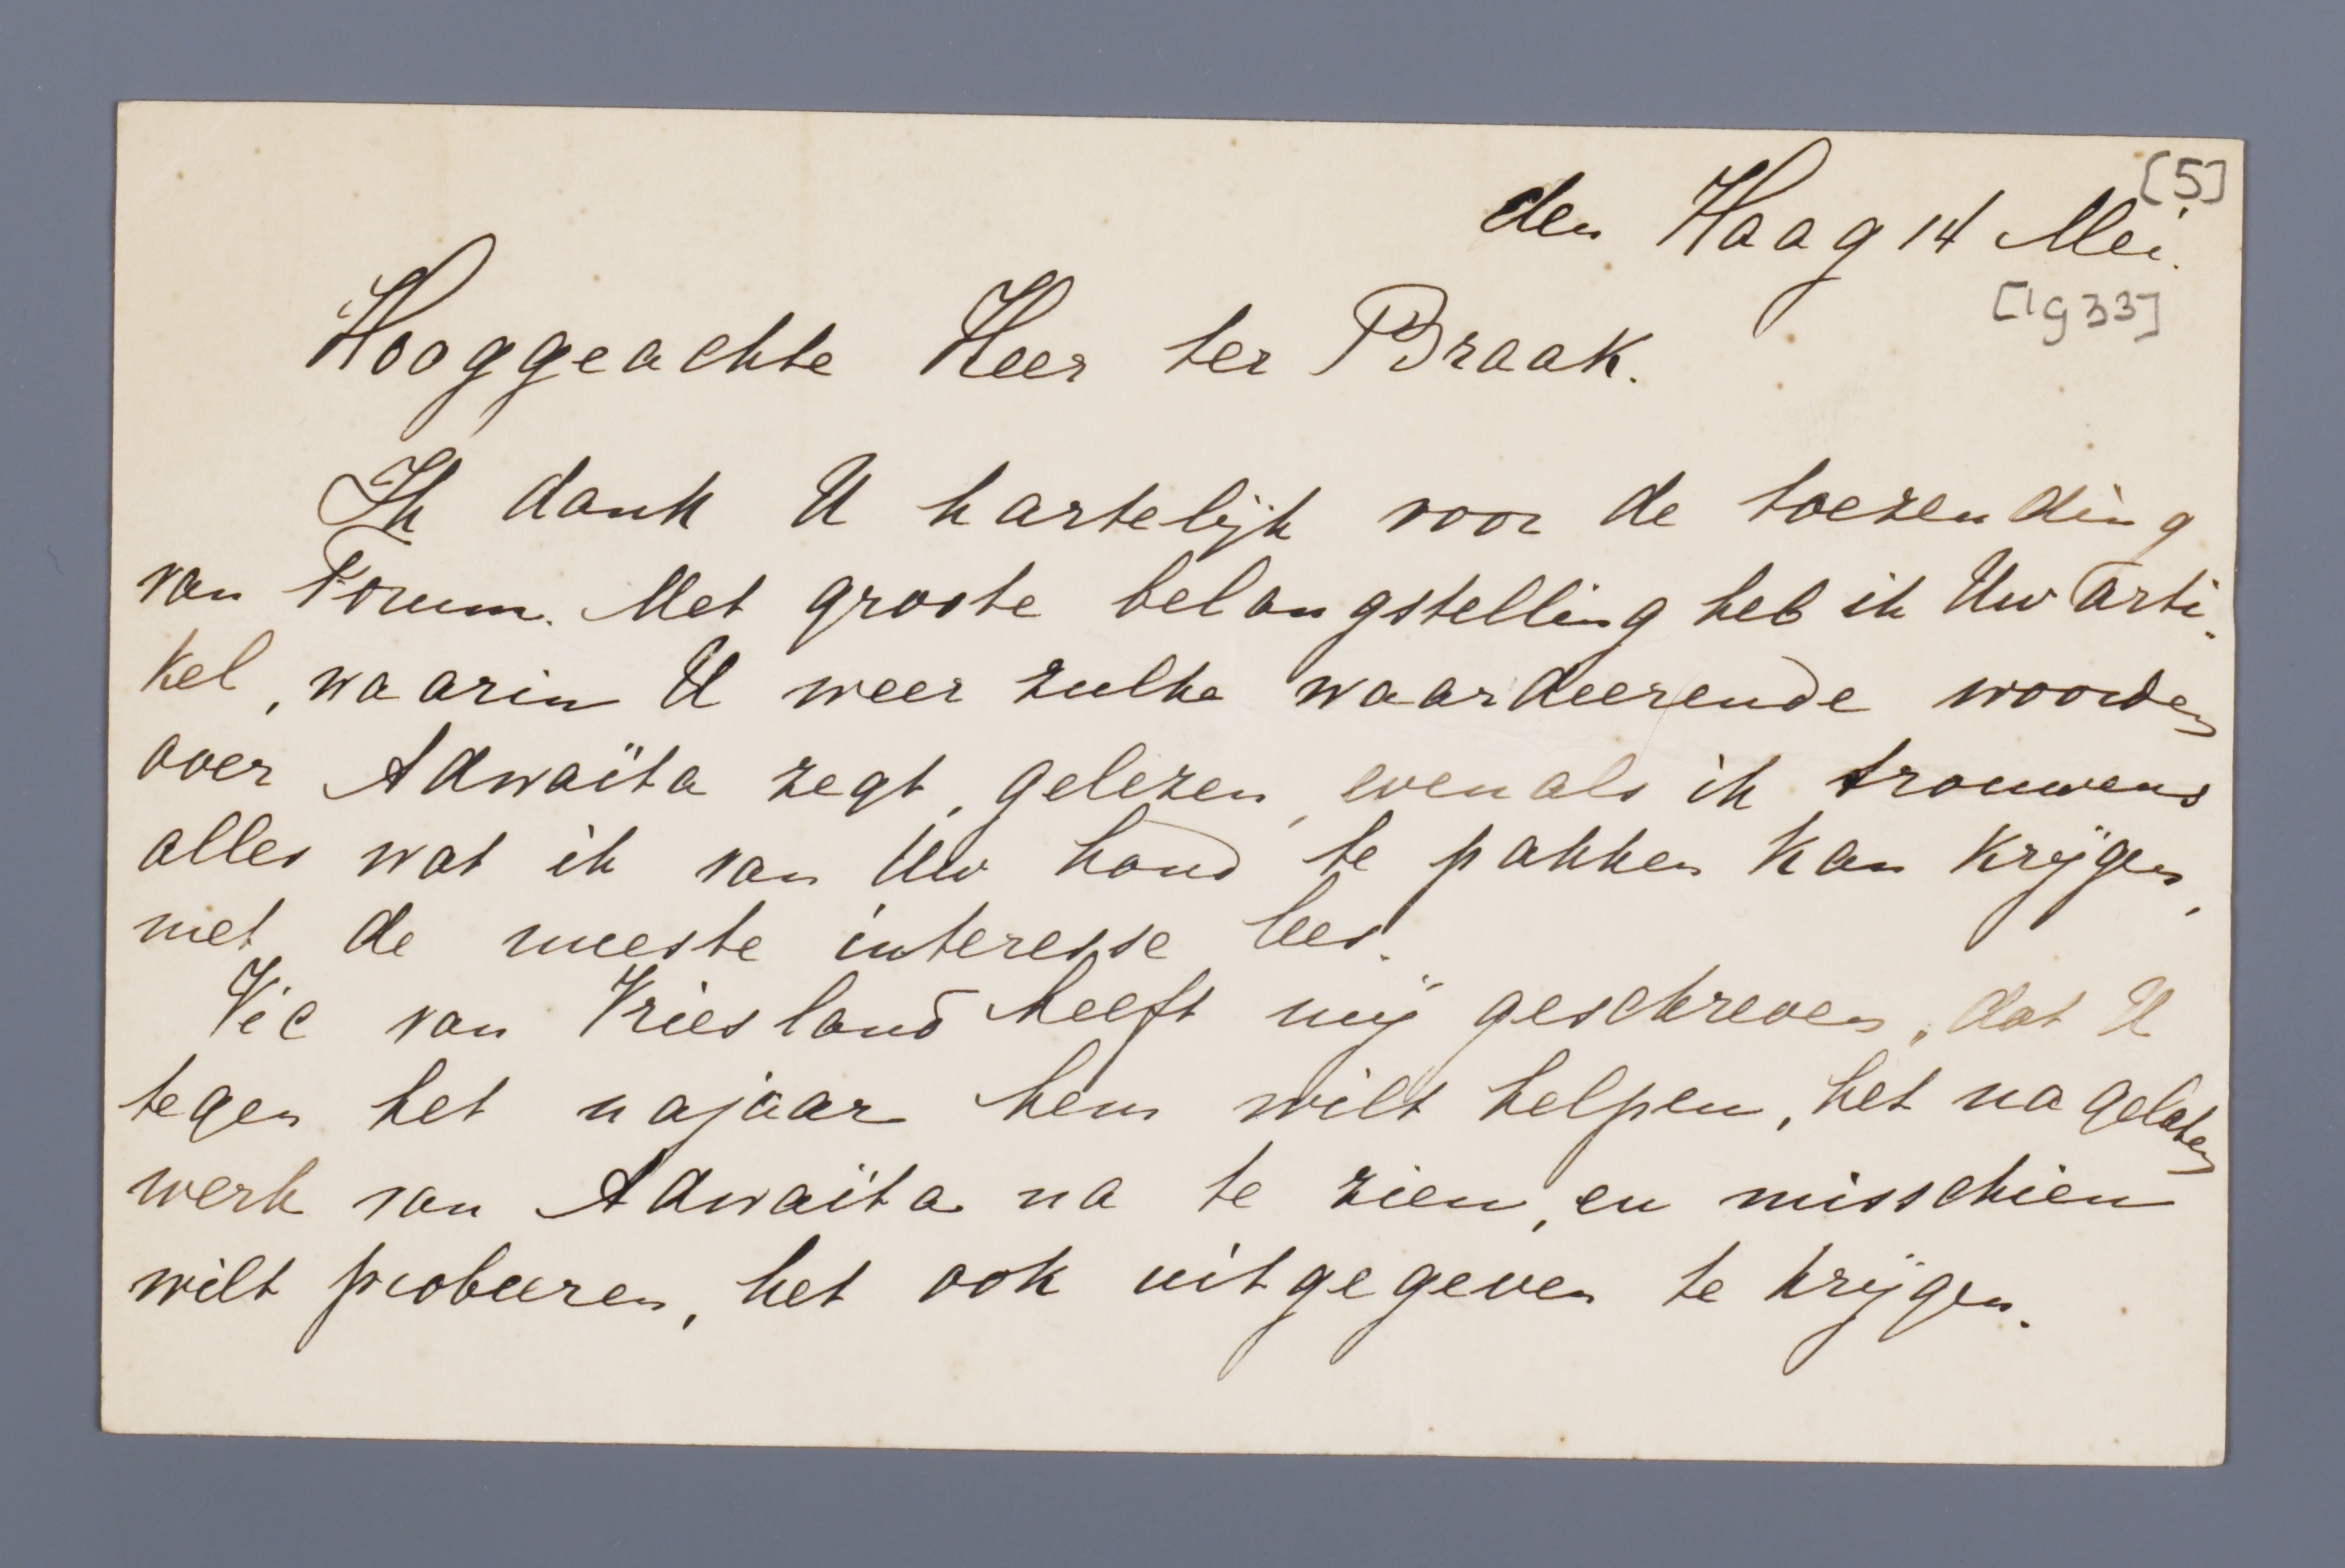 [5]
den Haag 14 Mei.
[1933]
Hooggeachte Heer ter Braak.
Ik dank U hartelijk voor de toezending
van Forum. Met groote belangstelling heb ik Uw arti-
kel, waarin U weer zulke waardeerende woorden
over Adwaïta zegt, gelezen, evenals ik trouwens
alles wat ik van Uw hand te pakken kan krijgen,
met de meeste interesse lees.
Vic van Vriesland heeft mij geschreven, dat U
tegen het najaar hem wilt helpen, het nagelaten
werk van Adwaïta na te zien, en misschien
wilt probeeren, het ook uitgegeven te krijgen.